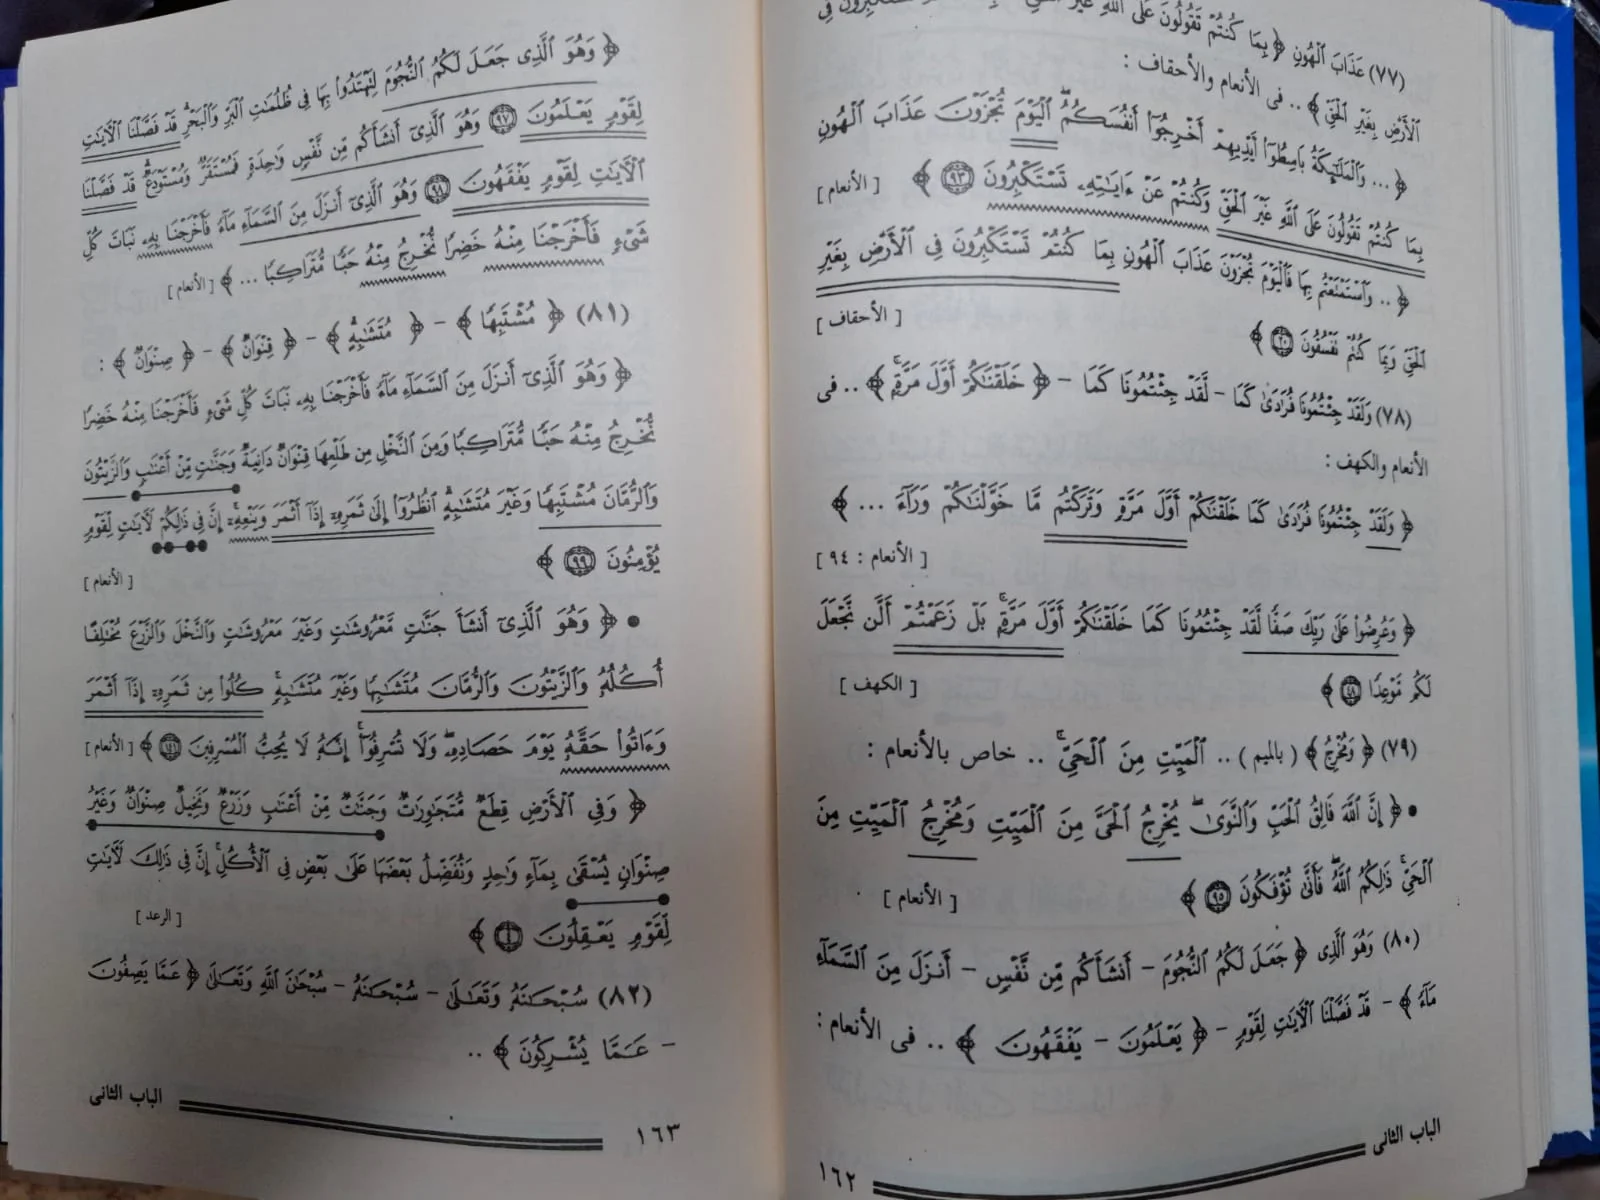 (٧٧) عَذَابَ ٱلْهُونِ ﴿ بِمَا كُنتُمْ تَقُولُونَ عَلَى ٱللَّهِ غَيْرَ
ٱلْأَرْضِ بِغَيْرِ ٱلْحَقِّ ﴾ .. فى الأنعام والأحقاف :
﴿ ... وَٱلْمَلَٰٓئِكَةُ بَاسِطُوٓا۟ أَيْدِيهِمْ أَخْرِجُوٓا۟ أَنفُسَكُمُ ۖ ٱلْيَوْمَ تُجْزَوْنَ عَذَابَ ٱلْهُونِ
بِمَا كُنتُمْ تَقُولُونَ عَلَى ٱللَّهِ غَيْرَ ٱلْحَقِّ وَكُنتُمْ عَنْ ءَايَٰتِهِۦ تَسْتَكْبِرُونَ ٩٣ ﴾ [ الأنعام ]
﴿ .. وَٱسْتَمْتَعْتُم بِهَا فَٱلْيَوْمَ تُجْزَوْنَ عَذَابَ ٱلْهُونِ بِمَا كُنتُمْ تَسْتَكْبِرُونَ فِى ٱلْأَرْضِ بِغَيْرِ
ٱلْحَقِّ وَبِمَا كُنتُمْ تَفْسُقُونَ ٢٠ ﴾ [ الأحقاف ]
(٧٨) وَلَقَدْ جِئْتُمُونَا فُرَٰدَىٰ كَمَا - لَقَدْ جِئْتُمُونَا كَمَا - ﴿ خَلَقْنَٰكُمْ أَوَّلَ مَرَّةٍ ﴾ .. فى
الأنعام والكهف :
﴿ وَلَقَدْ جِئْتُمُونَا فُرَٰدَىٰ كَمَا خَلَقْنَٰكُمْ أَوَّلَ مَرَّةٍ وَتَرَكْتُم مَّا خَوَّلْنَٰكُمْ وَرَآءَ ... ﴾
[ الأنعام : ٩٤ ]
﴿ وَعُرِضُوا۟ عَلَىٰ رَبِّكَ صَفًّا لَّقَدْ جِئْتُمُونَا كَمَا خَلَقْنَٰكُمْ أَوَّلَ مَرَّةٍۭ ۚ بَلْ زَعَمْتُمْ أَلَّن نَّجْعَلَ
لَكُم مَّوْعِدًا ٤٨ ﴾ [ الكهف ]
(٧٩) ﴿ وَمُخْرِجُ ﴾ ( بالميم ) .. ٱلْمَيِّتِ مِنَ ٱلْحَىِّ ۚ .. خاص بالأنعام :
• ﴿ إِنَّ ٱللَّهَ فَالِقُ ٱلْحَبِّ وَٱلنَّوَىٰ ۖ يُخْرِجُ ٱلْحَىَّ مِنَ ٱلْمَيِّتِ وَمُخْرِجُ ٱلْمَيِّتِ مِنَ
ٱلْحَىِّ ۚ ذَٰلِكُمُ ٱللَّهُ ۖ فَأَنَّىٰ تُؤْفَكُونَ ٩٥ ﴾ [ الأنعام ]
(٨٠) وَهُوَ ٱلَّذِى ﴿ جَعَلَ لَكُمُ ٱلنُّجُومَ - أَنشَأَكُم مِّن نَّفْسٍ - أَنزَلَ مِنَ ٱلسَّمَآءِ
مَآءً ﴾ - قَدْ فَصَّلْنَا ٱلْءَايَٰتِ لِقَوْمٍ - ﴿ يَعْلَمُونَ - يَفْقَهُونَ ﴾ .. فى الأنعام :
الباب الثانى
١٦٢
﴿ وَهُوَ ٱلَّذِى جَعَلَ لَكُمُ ٱلنُّجُومَ لِتَهْتَدُوا۟ بِهَا فِى ظُلُمَٰتِ ٱلْبَرِّ وَٱلْبَحْرِ ۗ قَدْ فَصَّلْنَا ٱلْءَايَٰتِ
لِقَوْمٍ يَعْلَمُونَ ٩٧ وَهُوَ ٱلَّذِىٓ أَنشَأَكُم مِّن نَّفْسٍ وَٰحِدَةٍ فَمُسْتَقَرٌّ وَمُسْتَوْدَعٌ ۗ قَدْ فَصَّلْنَا
ٱلْءَايَٰتِ لِقَوْمٍ يَفْقَهُونَ ٩٨ وَهُوَ ٱلَّذِىٓ أَنزَلَ مِنَ ٱلسَّمَآءِ مَآءً فَأَخْرَجْنَا بِهِۦ نَبَاتَ كُلِّ
شَىْءٍ فَأَخْرَجْنَا مِنْهُ خَضِرًا نُّخْرِجُ مِنْهُ حَبًّا مُّتَرَاكِبًا ... ﴾ [ الأنعام ]
(٨١) ﴿ مُشْتَبِهًا ﴾ - ﴿ مُتَشَٰبِهٍ ﴾ - ﴿ قِنْوَانٌ ﴾ - ﴿ صِنْوَانٌ ﴾ :
﴿ وَهُوَ ٱلَّذِىٓ أَنزَلَ مِنَ ٱلسَّمَآءِ مَآءً فَأَخْرَجْنَا بِهِۦ نَبَاتَ كُلِّ شَىْءٍ فَأَخْرَجْنَا مِنْهُ خَضِرًا
نُّخْرِجُ مِنْهُ حَبًّا مُّتَرَاكِبًا وَمِنَ ٱلنَّخْلِ مِن طَلْعِهَا قِنْوَانٌ دَانِيَةٌ وَجَنَّٰتٍ مِّنْ أَعْنَابٍ وَٱلزَّيْتُونَ
وَٱلرُّمَّانَ مُشْتَبِهًا وَغَيْرَ مُتَشَٰبِهٍ ۗ ٱنظُرُوٓا۟ إِلَىٰ ثَمَرِهِۦٓ إِذَآ أَثْمَرَ وَيَنْعِهِۦٓ ۚ إِنَّ فِى ذَٰلِكُمْ لَءَايَٰتٍ لِّقَوْمٍ
يُؤْمِنُونَ ٩٩ ﴾ [ الأنعام ]
• ﴿ وَهُوَ ٱلَّذِىٓ أَنشَأَ جَنَّٰتٍ مَّعْرُوشَٰتٍ وَغَيْرَ مَعْرُوشَٰتٍ وَٱلنَّخْلَ وَٱلزَّرْعَ مُخْتَلِفًا
أُكُلُهُۥ وَٱلزَّيْتُونَ وَٱلرُّمَّانَ مُتَشَٰبِهًا وَغَيْرَ مُتَشَٰبِهٍ ۚ كُلُوا۟ مِن ثَمَرِهِۦٓ إِذَآ أَثْمَرَ
وَءَاتُوا۟ حَقَّهُۥ يَوْمَ حَصَادِهِۦ ۖ وَلَا تُسْرِفُوٓا۟ ۚ إِنَّهُۥ لَا يُحِبُّ ٱلْمُسْرِفِينَ ١٤١ ﴾ [ الأنعام ]
﴿ وَفِى ٱلْأَرْضِ قِطَعٌ مُّتَجَٰوِرَٰتٌ وَجَنَّٰتٌ مِّنْ أَعْنَٰبٍ وَزَرْعٌ وَنَخِيلٌ صِنْوَانٌ وَغَيْرُ
صِنْوَانٍ يُسْقَىٰ بِمَآءٍ وَٰحِدٍ وَنُفَضِّلُ بَعْضَهَا عَلَىٰ بَعْضٍ فِى ٱلْأُكُلِ ۚ إِنَّ فِى ذَٰلِكَ لَءَايَٰتٍ
لِّقَوْمٍ يَعْقِلُونَ ٤ ﴾ [ الرعد ]
(٨٢) سُبْحَٰنَهُۥ وَتَعَٰلَىٰ - سُبْحَٰنَهُۥ - سُبْحَٰنَ ٱللَّهِ وَتَعَٰلَىٰ ﴿ عَمَّا يَصِفُونَ
- عَمَّا يُشْرِكُونَ ﴾ ..
الباب الثانى
١٦٣